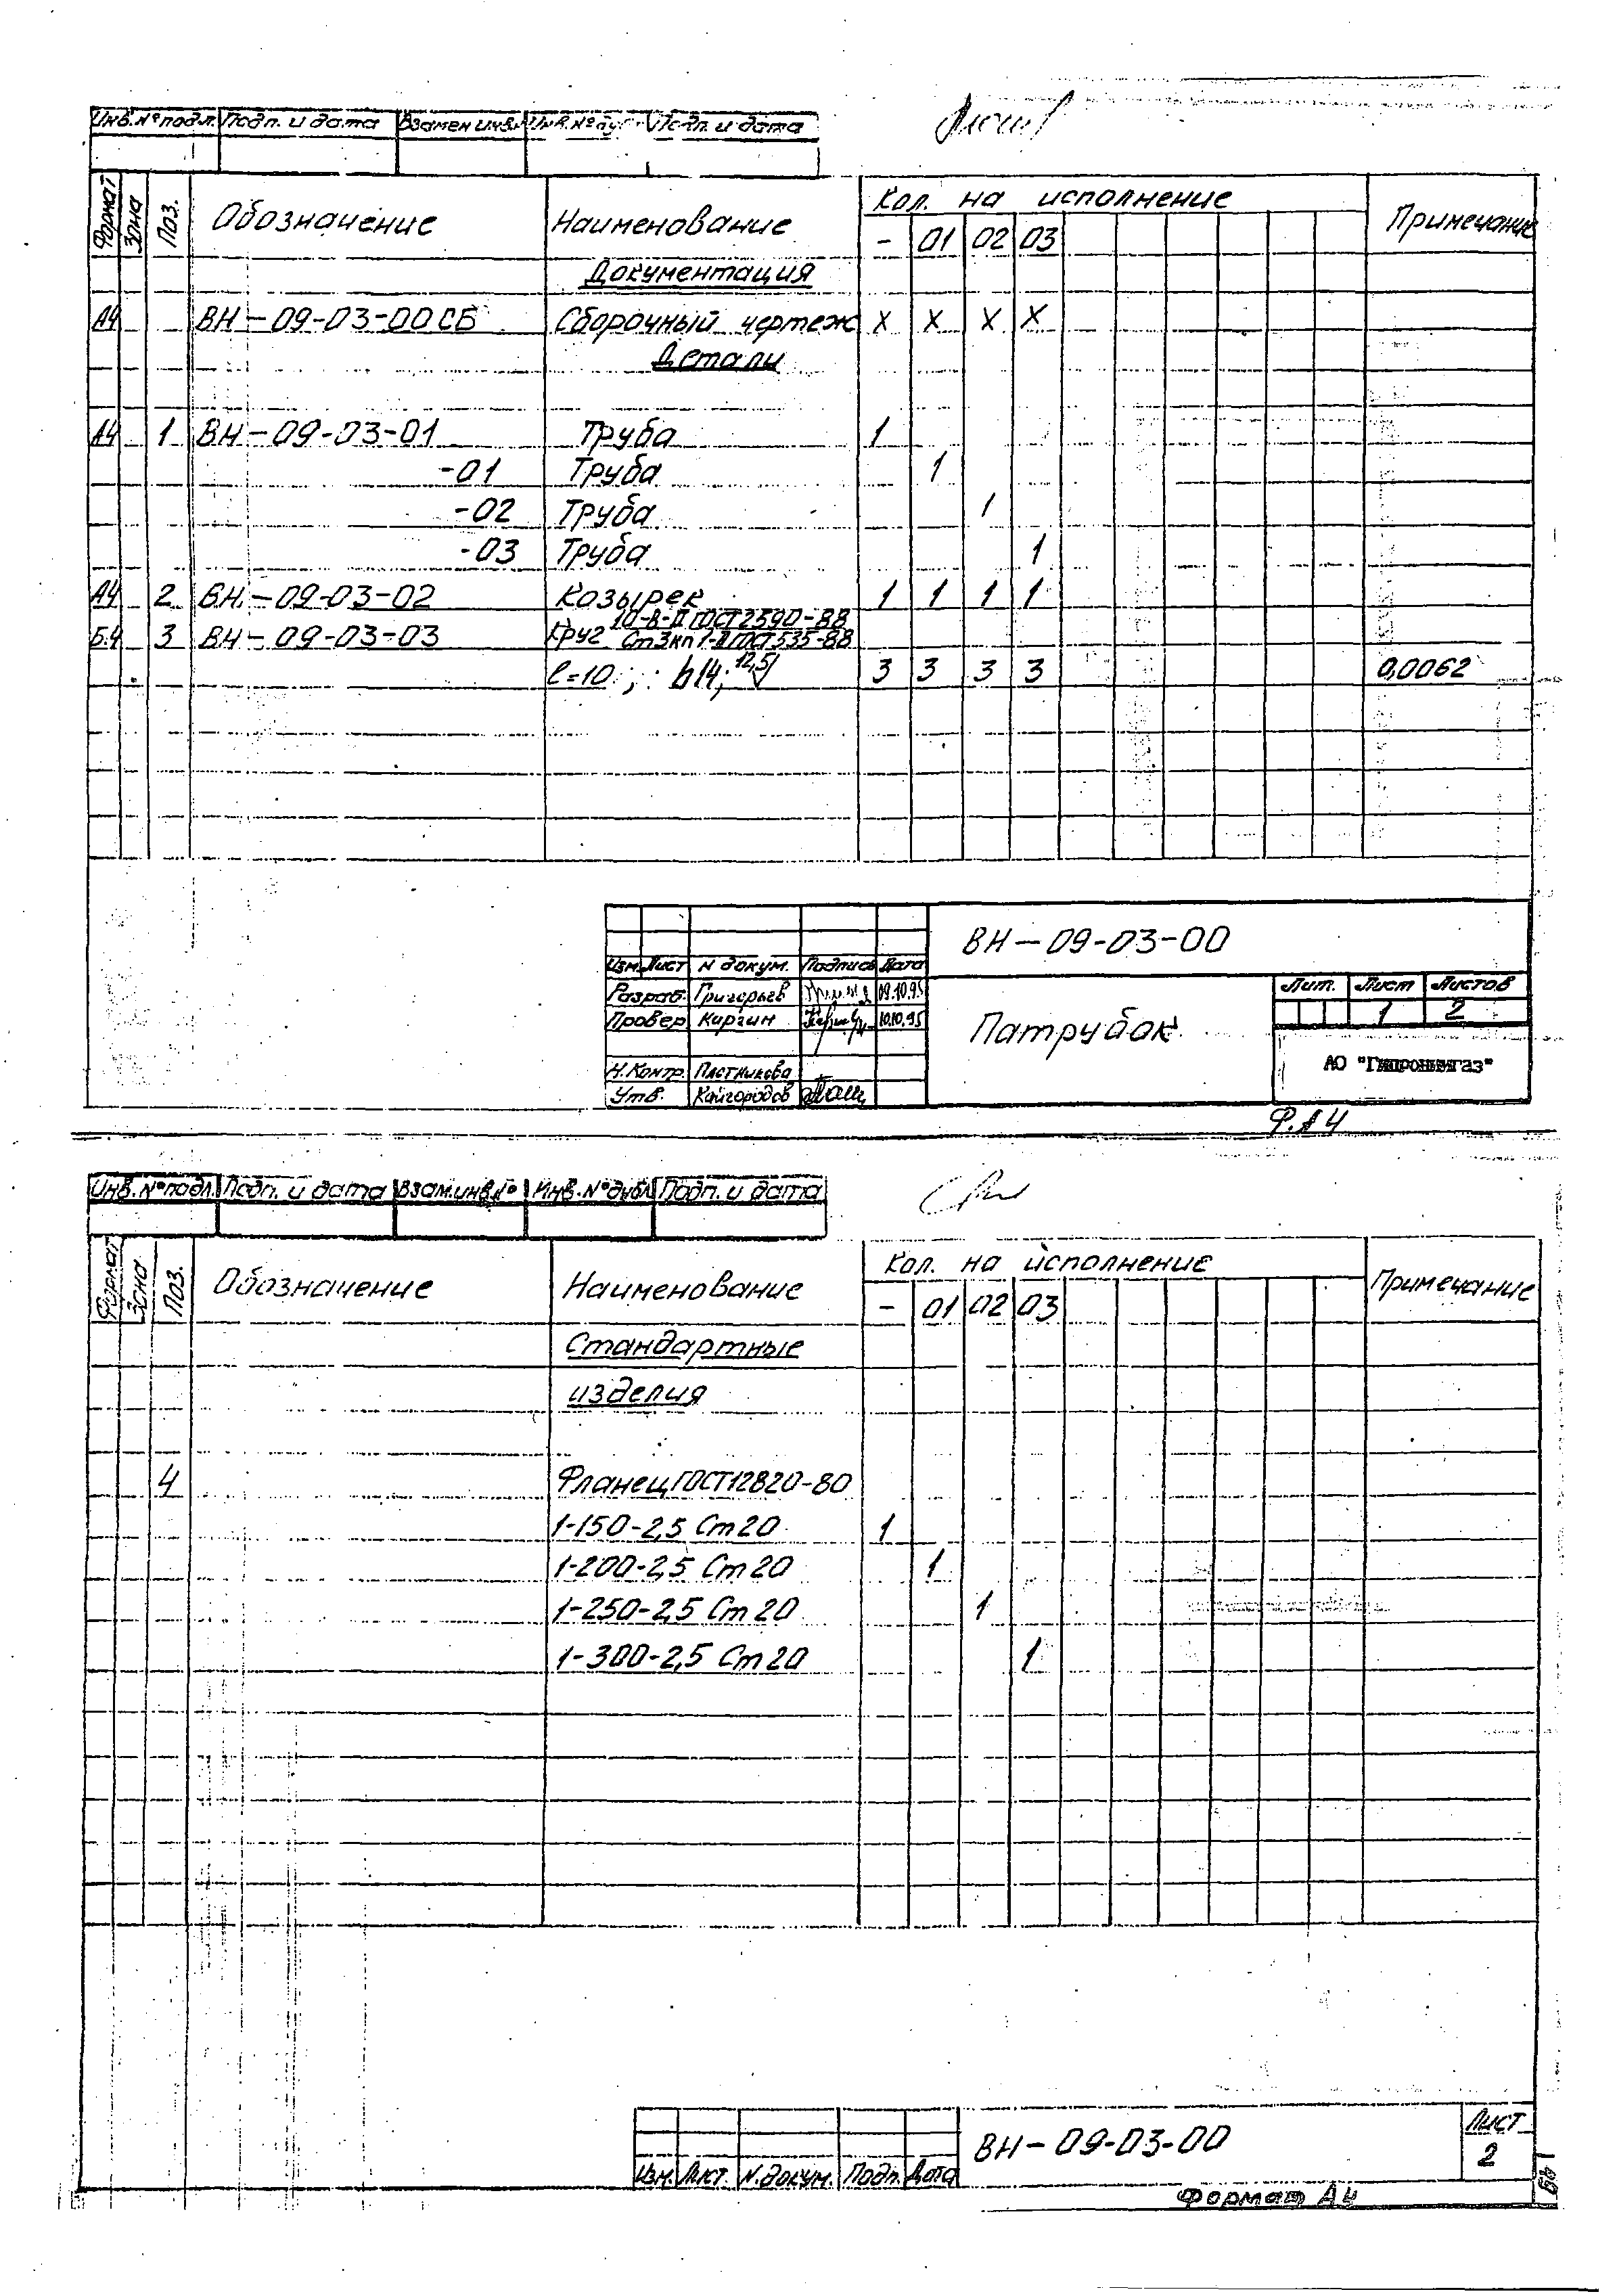 Инв.№подл. Подп. и дата Взамен инв.№ Инв.№дуб Подп. и дата
Формат Зона Поз. Обозначение Наименование Кол. на исполнение Примечание
- 01 02 03
Документация
А4 ВН-09-03-00 СБ Сборочный чертеж Х Х Х Х
Детали
А4 1 ВН-09-03-01 Труба 1
-01 Труба 1
-02 Труба 1
-03 Труба 1
А4 2 ВН-09-03-02 Козырек 1 1 1 1
Б.Ч 3 ВН-09-03-03 Круг 10-В-II ГОСТ 2590-88
Ст3кп1-II ГОСТ 535-88
l=10; h14; 12,5 3 3 3 3 0,0062
ВН-09-03-00
Изм. Лист N докум. Подпись Дата
Разраб. Григорьев 09.10.95
Провер Киргин 10.10.95
Н.Контр. Пластинкова
Утв. Кайгородов
Патрубок
Лит. Лист Листов
1 2
АО "Гипрониигаз"
Ф.А4
Инв.№подл. Подп. и дата Взам.инв.№ Инв.№дубл Подп. и дата
Формат Зона Поз. Обозначение Наименование Кол. на исполнение Примечание
- 01 02 03
Стандартные
изделия
4 Фланец ГОСТ12820-80
1-150-2,5 Ст20 1
1-200-2,5 Ст20 1
1-250-2,5 Ст20 1
1-300-2,5 Ст20 1
Изм. Лист. N.докум. Подп. Дата
ВН-09-03-00
Лист
2
Формат А4